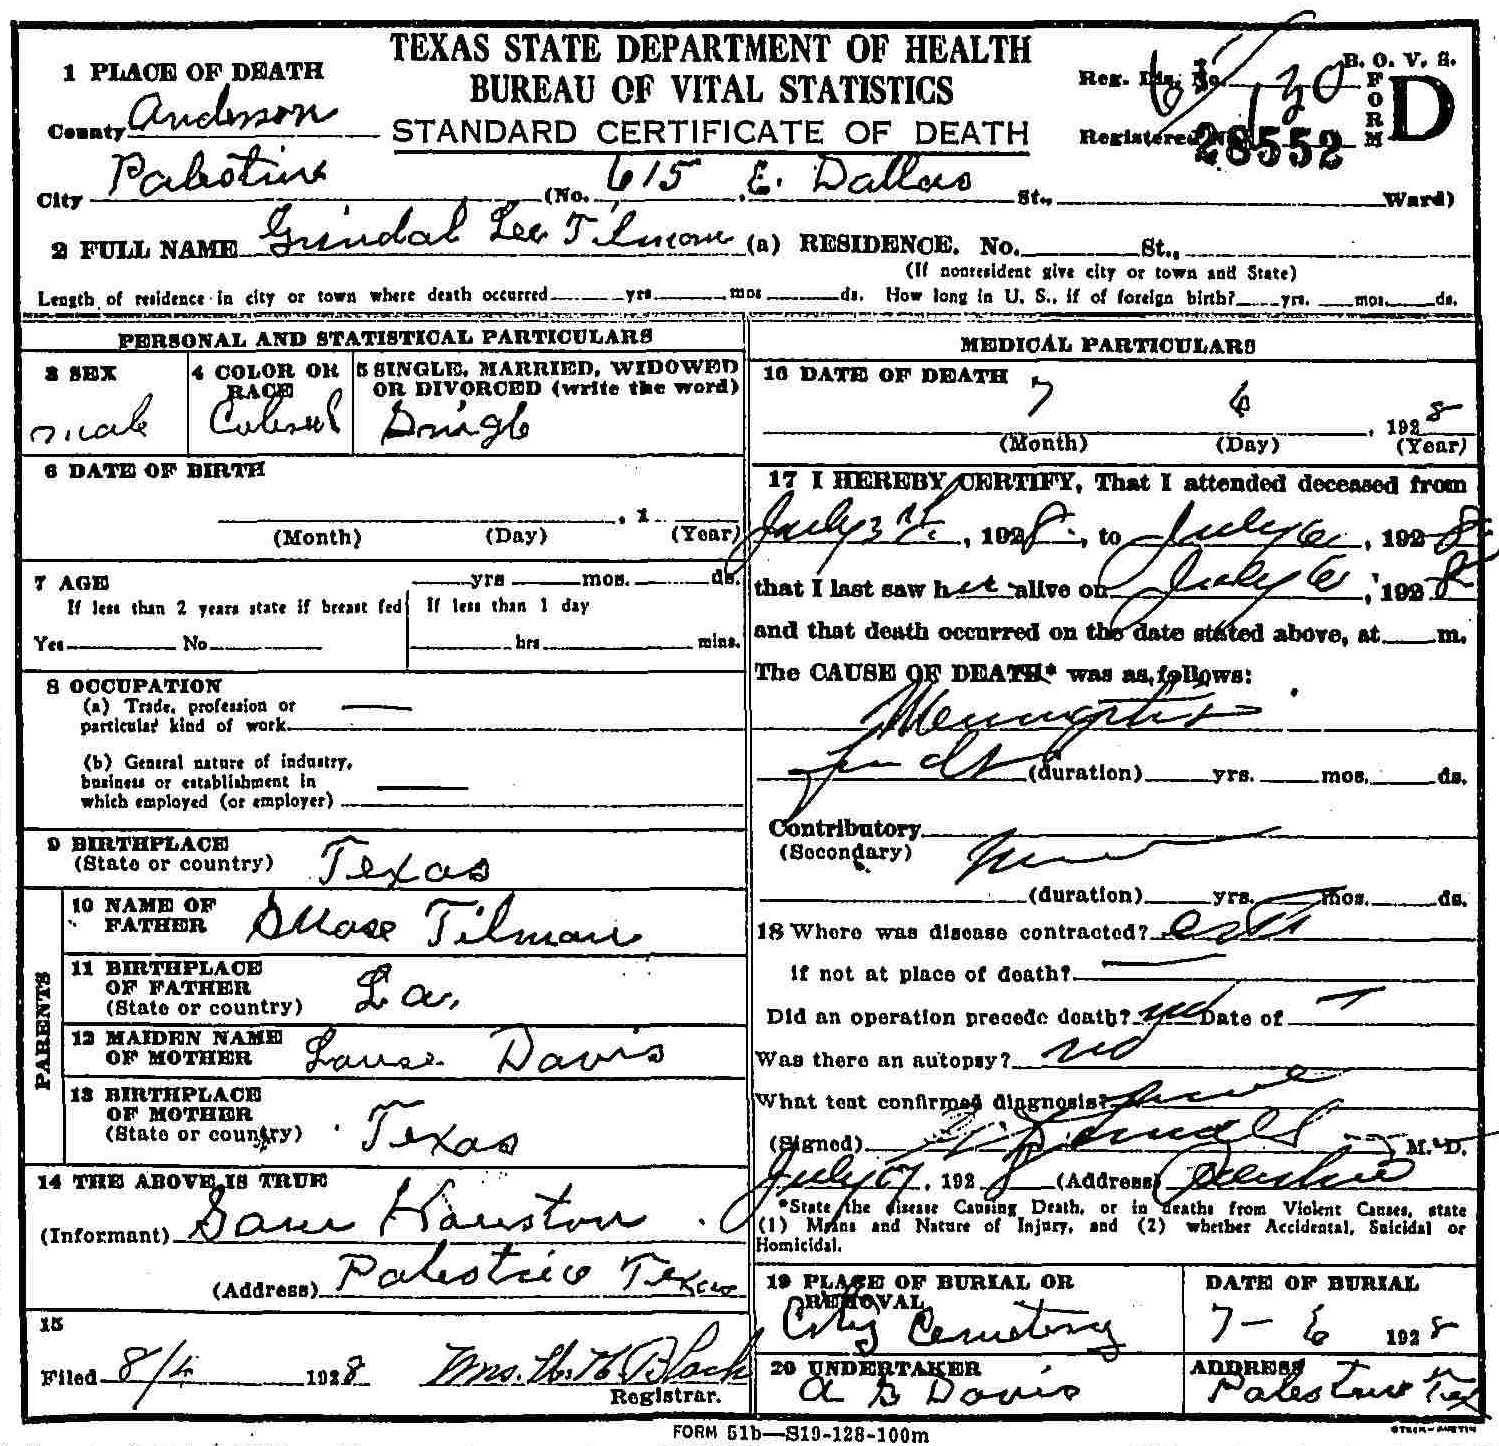 TEXAS STATE DEPARTMENT OF HEALTH
BUREAU OF VITAL STATISTICS
STANDARD CERTIFICATE OF DEATH
B. O. V. S.
FORM D
Reg. Dis. No.
Registered No. 28552
1 PLACE OF DEATH
County Anderson
City Palestine (No. 615, E. Dallas St., Ward)
2 FULL NAME Grindal Lee Tilman (a) RESIDENCE. No. St.,
(If nonresident give city or town and State)
Length of residence in city or town where death occurred yrs. mos ds. How long in U. S., if of foreign birth? yrs. mos. ds.
PERSONAL AND STATISTICAL PARTICULARS
3 SEX
male
4 COLOR OR RACE
Colored
5 SINGLE, MARRIED, WIDOWED
OR DIVORCED (write the word)
Single
6 DATE OF BIRTH
, 1
(Month) (Day) (Year)
7 AGE yrs mos. ds.
If less than 2 years state if breast fed
Yes No
If less than 1 day
hrs mins.
8 OCCUPATION
(a) Trade, profession or
particular kind of work
(b) General nature of industry,
business or establishment in
which employed (or employer)
9 BIRTHPLACE
(State or country) Texas
PARENTS
10 NAME OF
FATHER Tilman
11 BIRTHPLACE
OF FATHER
(State or country) La.
12 MAIDEN NAME
OF MOTHER Davis
13 BIRTHPLACE
OF MOTHER
(State or country) Texas
14 THE ABOVE IS TRUE
(Informant) Sam Houston
(Address) Palestine Texas
15
Filed 8/4 1928 Mrs. H. H. Black
Registrar.
MEDICAL PARTICULARS
16 DATE OF DEATH
7 6, 1928
(Month) (Day) (Year)
17 I HEREBY CERTIFY, That I attended deceased from
July 3, 1928, to July 6, 1928
that I last saw h alive on July 6, 1928
and that death occurred on the date stated above, at m.
The CAUSE OF DEATH* was as follows:
Meningitis
(duration) yrs. mos. ds.
Contributory
(Secondary)
(duration) yrs. mos. ds.
18 Where was disease contracted?
if not at place of death?
Did an operation precede death? no Date of
Was there an autopsy? no
What test confirmed diagnosis?
(Signed) M. D.
July 7, 1928 (Address) Palestine
*State the disease Causing Death, or in deaths from Violent Causes, state
(1) Means and Nature of Injury, and (2) whether Accidental, Suicidal or
Homicidal.
19 PLACE OF BURIAL OR
REMOVAL
City Cemetery
DATE OF BURIAL
7-6 1928
20 UNDERTAKER
A B Davis
ADDRESS
Palestine Tex
FORM 51b—S19-128-100m